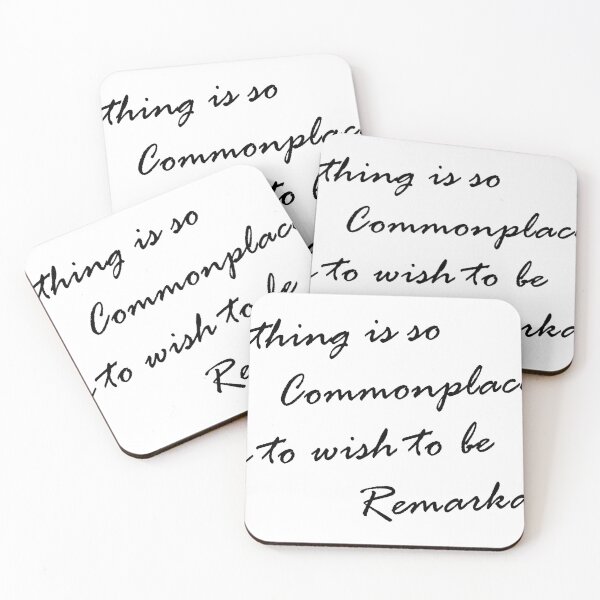 thing is so
Commonplac
to
thing is so
Commonplac
to wish to be
arka
thing is so
Commonplac
to wish to be
Re
thing is so
Commonplac
to wish to be
Remarka